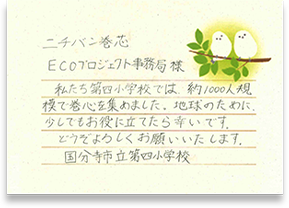 ニチバン巻芯
ECOプロジェクト事務局 様
私たち第四小学校では、約1000人規
模で巻心を集めました。地球のために
少しでもお役に立てたら幸いです。
どうぞよろしくお願いいたします。
国分寺市立第四小学校